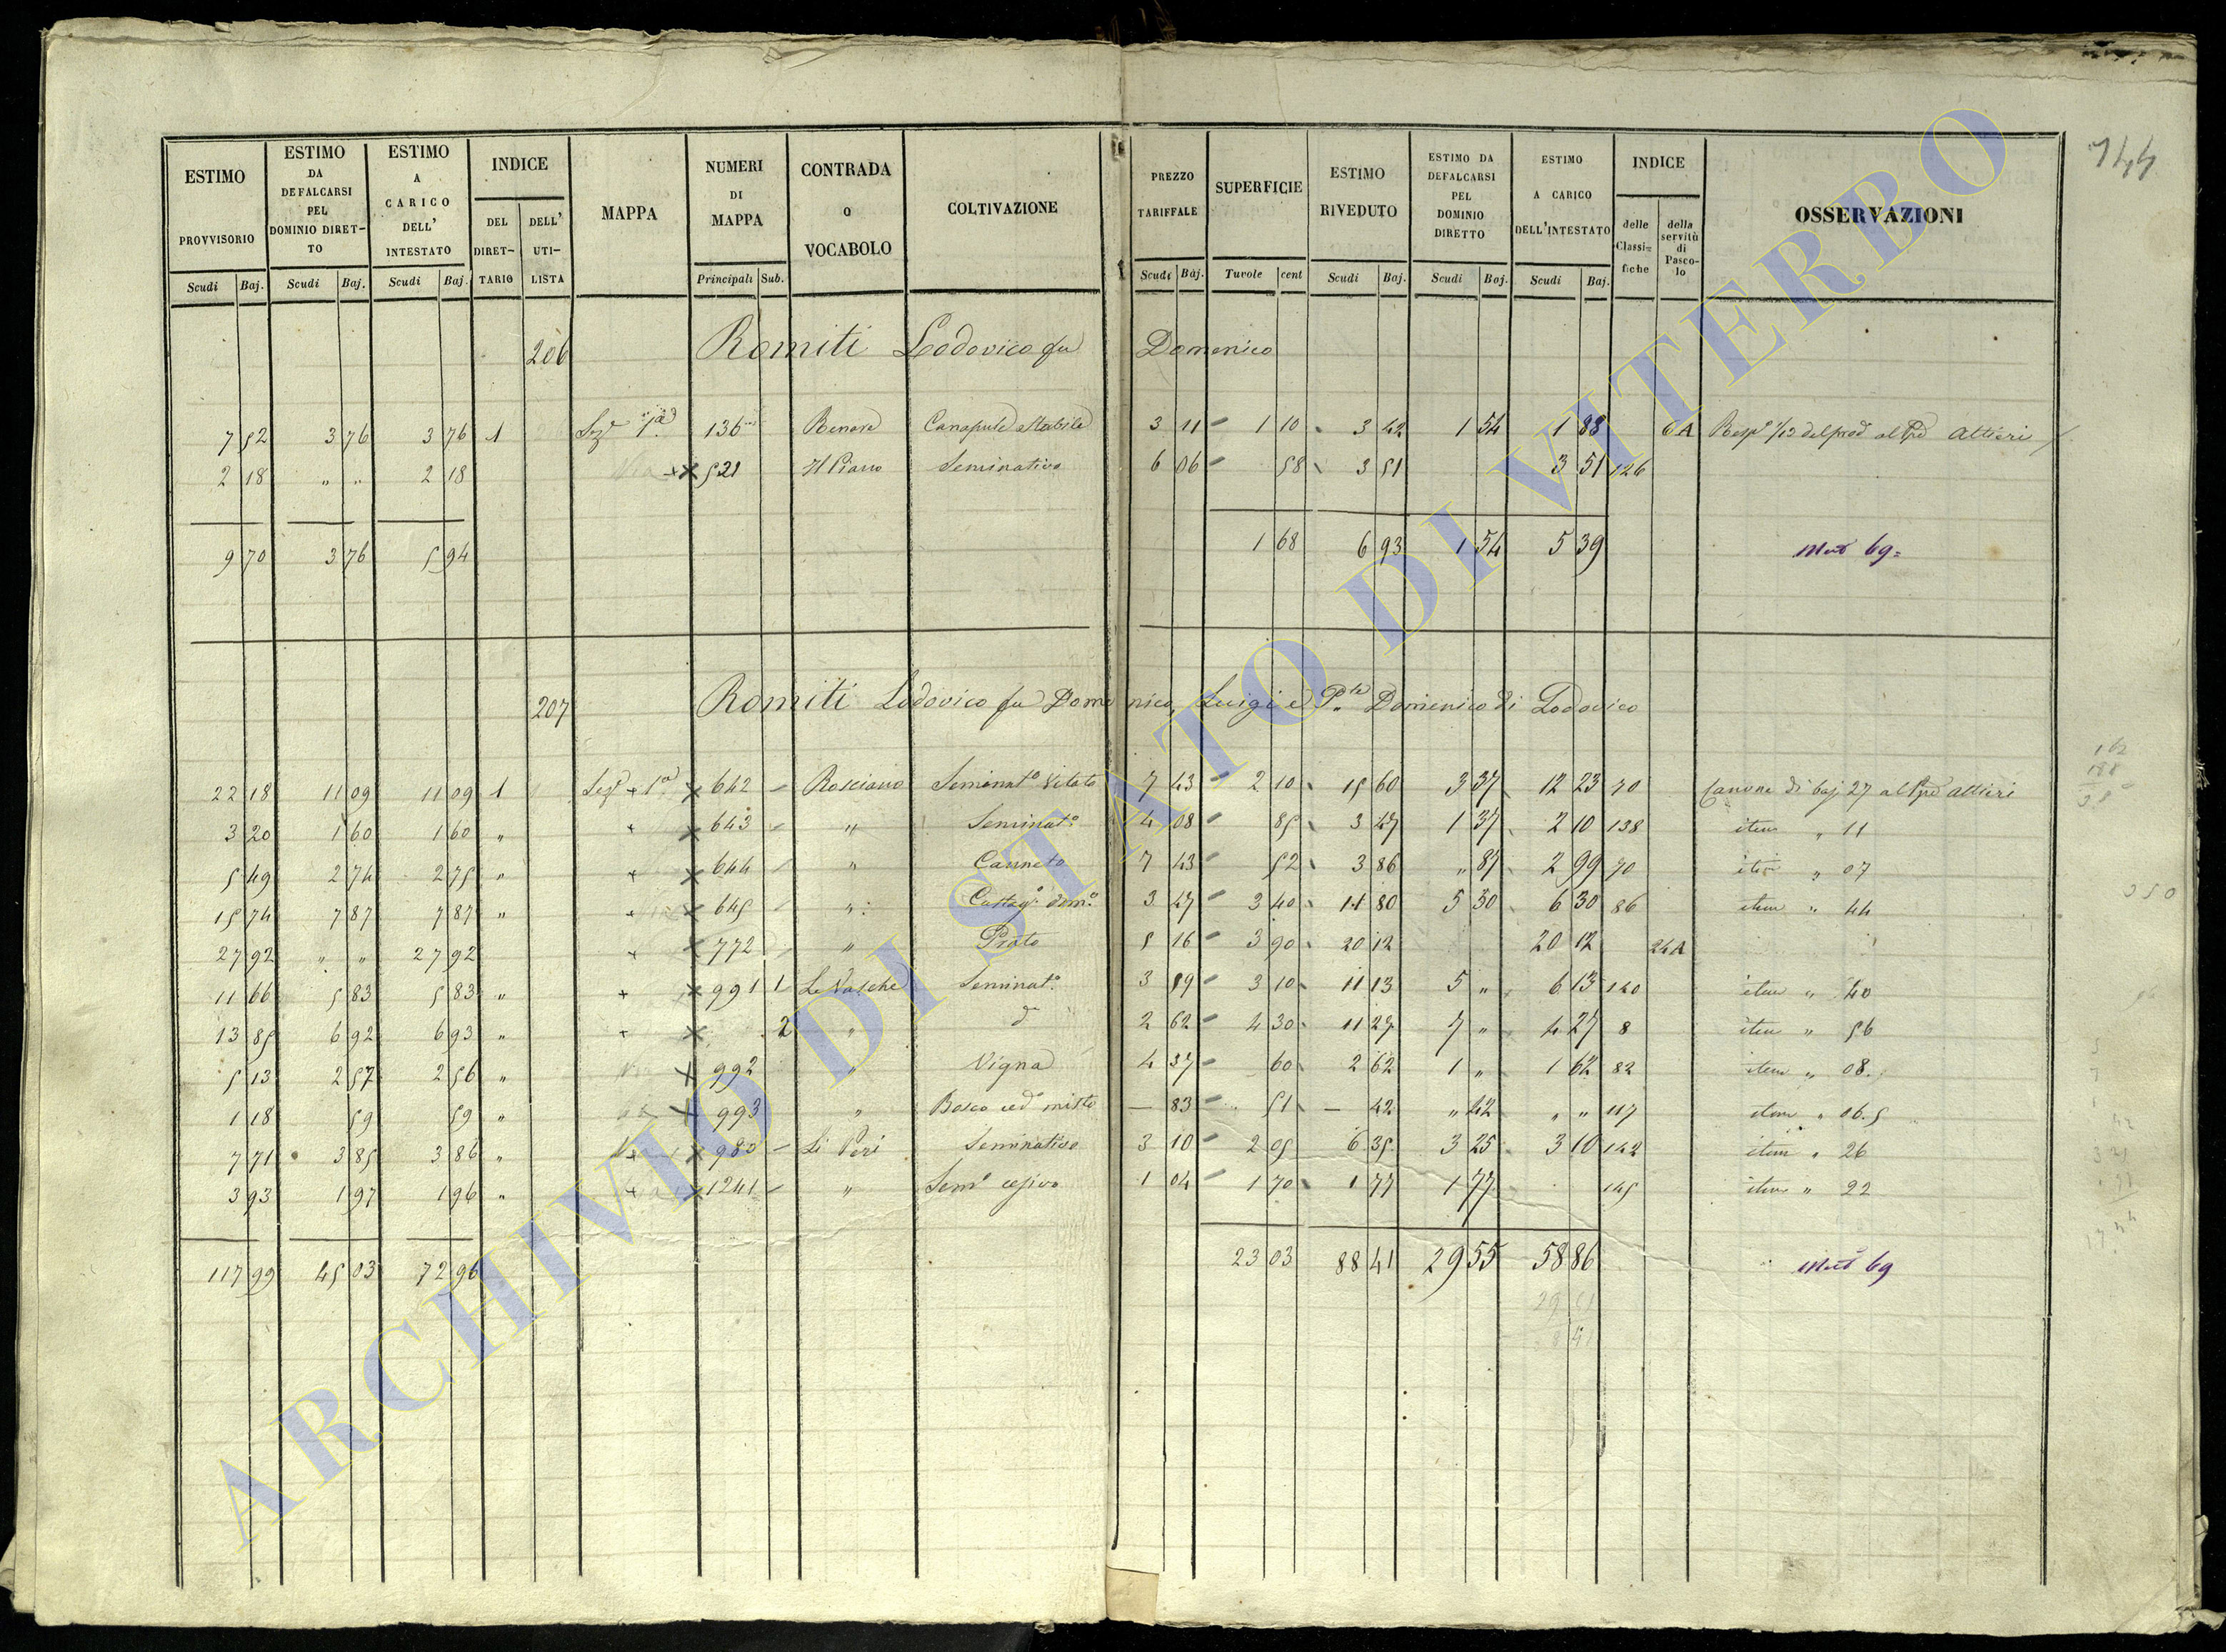 144
ESTIMO PROVVISORIO Scudi Baj.
ESTIMO DA DEFALCARSI PEL DOMINIO DIRETTO Scudi Baj.
ESTIMO A CARICO DELL' INTESTATO Scudi Baj.
INDICE DEL DIRETTARIO DELL' UTILISTA
MAPPA
NUMERI DI MAPPA Principali Sub.
CONTRADA O VOCABOLO
COLTIVAZIONE
PREZZO TARIFFALE Scudi Baj.
SUPERFICIE Tavole cent
ESTIMO RIVEDUTO Scudi Baj.
ESTIMO DA DEFALCARSI PEL DOMINIO DIRETTO Scudi Baj.
ESTIMO A CARICO DELL'INTESTATO Scudi Baj.
INDICE delle Classifiche della servitù di Pascolo
OSSERVAZIONI
206 Romiti Lodovico fu Domenico
7 52 3 76 3 76 1 Sez.e 1a 136 Canapule stabile 3 11 1 10 3 42 1 54 1 88 6A 1/12 del prod al Altieri
2 18 " " 2 18 521 Il Piano Seminativo 6 06 58 3 51 3 51 126
9 70 3 76 5 94 1 68 6 93 1 54 5 39 Mut 69
207 Romiti Lodovico fu Domenico, Luigi e Domenico di Lodovico
22 18 11 09 11 09 1 Sez.e 1a 642 Rosciano Seminat.o Vitato 7 43 2 10 15 60 3 37 12 23 70 Canone di baj 27 al Altieri
3 20 1 60 1 60 " 643 " Seminat.o 4 08 85 3 47 1 37 2 10 138 item " 11
5 49 2 74 2 75 " 644 " Canneto 7 43 52 3 86 " 87 2 99 70 item " 07
15 74 7 87 7 87 " 645 " Castag.o dom.o 3 47 3 40 11 80 5 30 6 30 86 item " 44
27 92 " " 27 92 772 " Prato 5 16 3 90 20 12 20 12 24A
11 66 5 83 5 83 " 991 1 Le Vasche Seminat.o 3 59 3 10 11 13 5 " 6 13 140 item " 40
13 85 6 92 6 93 " 2 " d.o 2 62 4 30 11 27 7 " 4 27 8 item " 56
5 13 2 57 2 56 " 992 " Vigna 4 37 60 2 62 1 " 1 62 82 item " 08
1 18 59 59 " 993 " Bosco ced.o misto 83 51 42 " 42 " " 117 item " 06.5
7 71 3 85 3 86 " 980 Li Peri Seminativo 3 10 2 05 6 35 3 25 3 10 142 item " 26
3 93 1 97 1 96 " 1241 " Sem.o cesivo 1 04 1 70 1 77 1 77 145 item " 22
117 99 45 03 72 96 23 03 88 41 29 55 58 86 Mut 69
ARCHIVIO DI STATO DI VITERBO